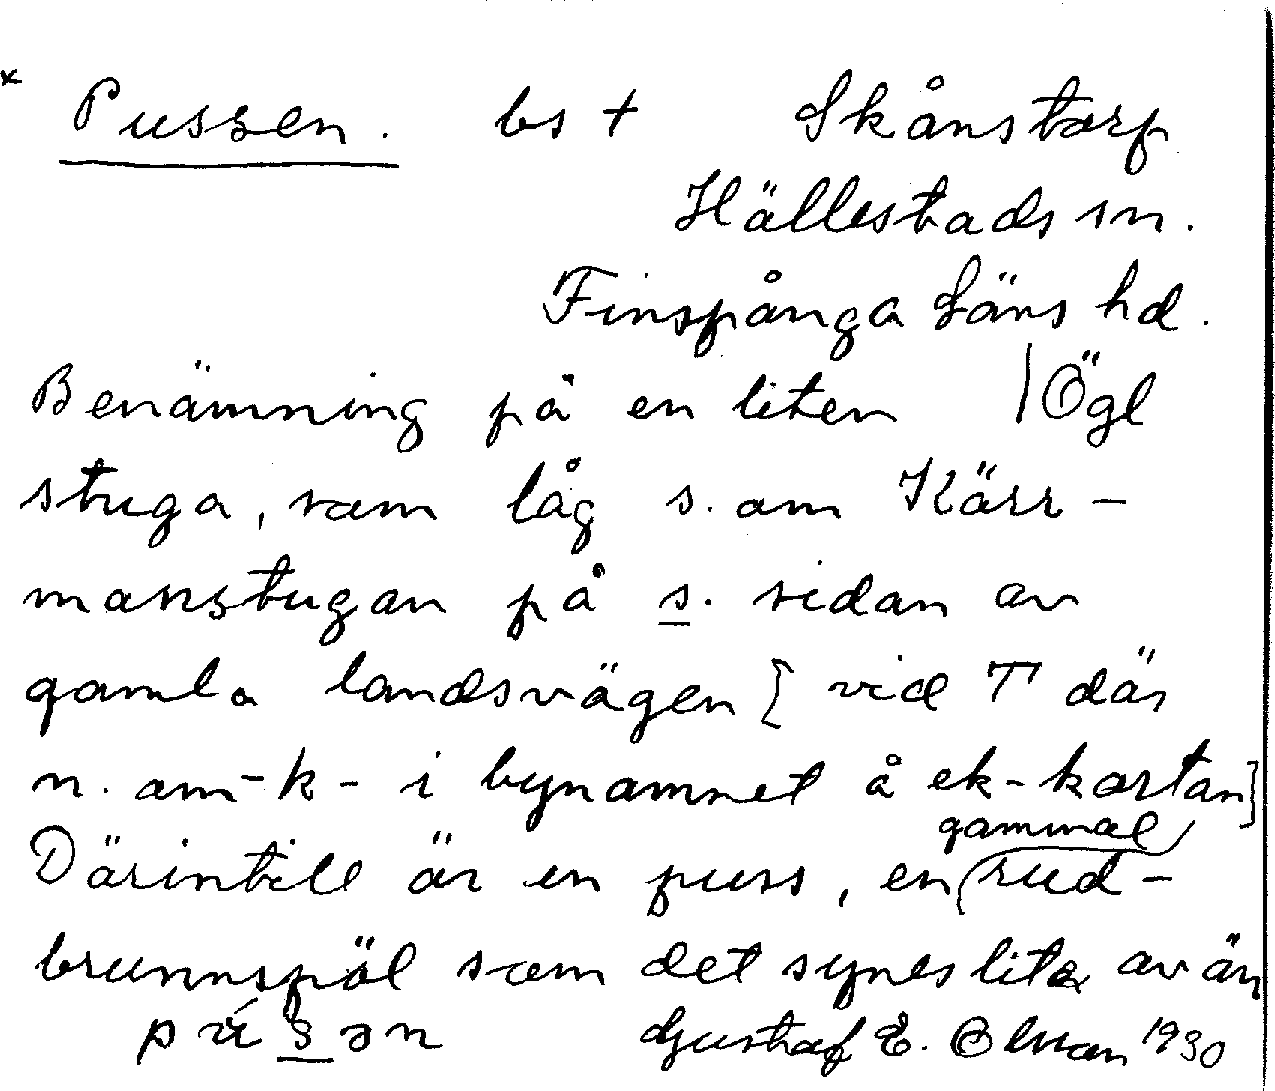 * Pussen. bs + Skånstorp
Hällestads sn.
Finspånga Läns hd.
Benämning på en liten | Ögl
stuga, som låg s. om Kärr-
manstugan på s. sidan av
gamla landsvägen [ vid T där
n. om -k- i bynamnet å ek-kartan]
Därintill är en puss, en gammal rud-
brunnspöl som det synes lite av än
Gustaf E. Olsson 1930